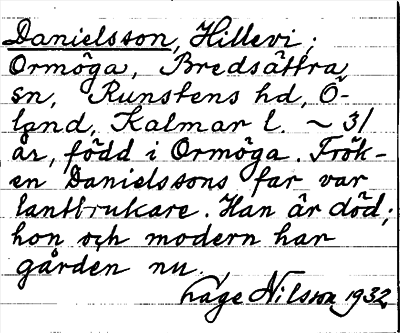 Danielsson, Hillevi;
Ormöga, Bredsättra
sn, Runstens hd, Ö-
land, Kalmar l. ~ 31
år, född i Ormöga. Frök-
en Danielssons far var
lantbrukare. Han är död;
hon och modern har
gården nu.
Åage Nilson 1932